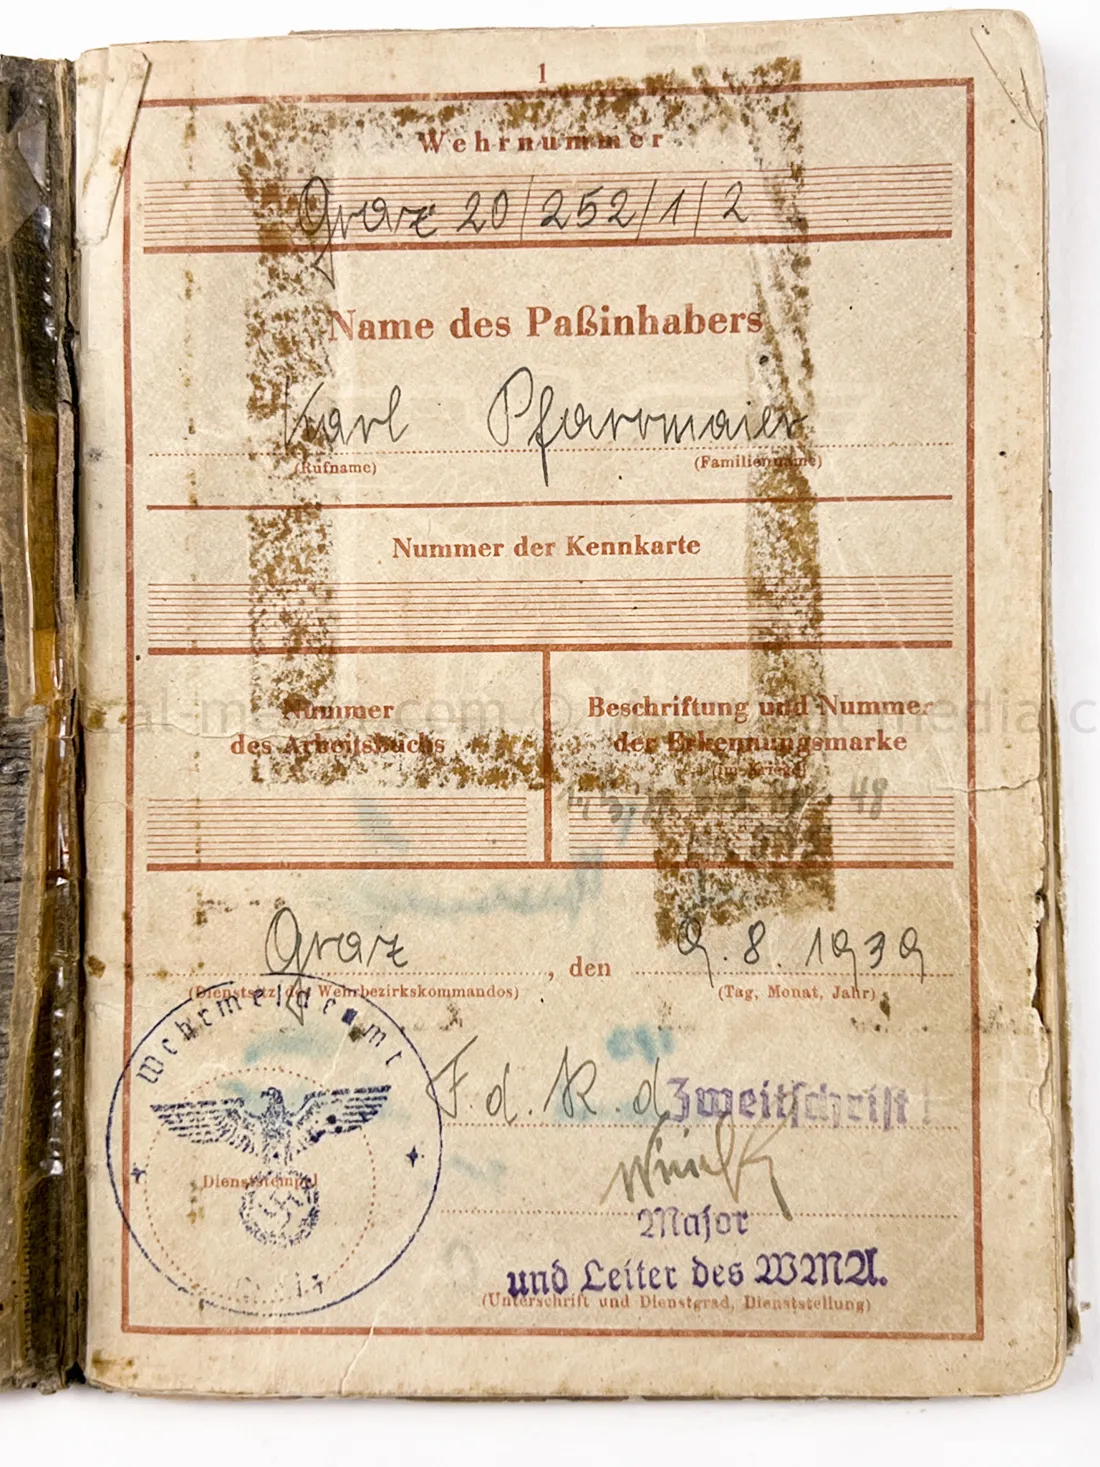 1
Wehrnummer
Graz 20/252/1/2
Name des Paßinhabers
Karl Pfarrmaier
(Rufname) (Familienname)
Nummer der Kennkarte
Nummer
des Arbeitsbuchs
Beschriftung und Nummer
der Erkennungsmarke
(im Kriege)
48
Graz, den 9. 8. 1939
(Dienstsitz des Wehrbezirkskommandos) (Tag, Monat, Jahr)
Wehrmeldeamt
F. d. R. d. Zweitschrift
Dienststempel
Major
und Leiter des WMA.
(Unterschrift und Dienstgrad, Dienststellung)